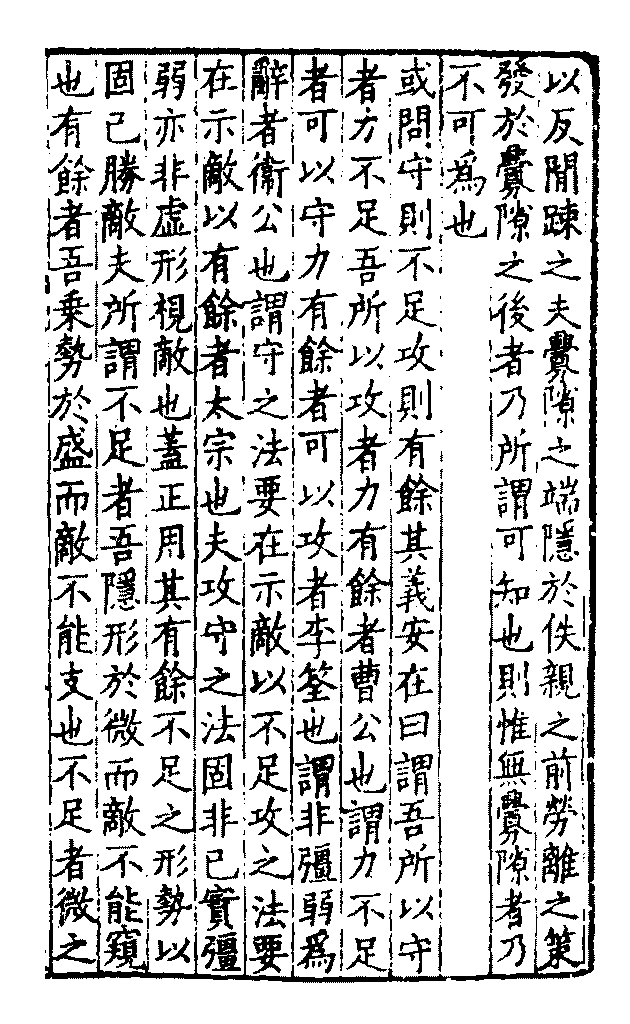 以反間踈之夫釁隙之端隱於佚親之前勞離之策
發於釁隙之後者乃所謂可知也則惟無釁隙者乃
不可爲也
或問守則不足攻則有餘其義安在曰謂吾所以守
者力不足吾所以攻者力有餘者曹公也謂力不足
者可以守力有餘者可以攻者李筌也謂非彊弱爲
辭者衞公也謂守之法要在示敵以不足攻之法要
在示敵以有餘者太宗也夫攻守之法固非已實彊
弱亦非虛形視敵也蓋正用其有餘不足之形勢以
固己勝敵夫所謂不足者吾隱形於微而敵不能窺
也有餘者吾乗勢於盛而敵不能支也不足者微之